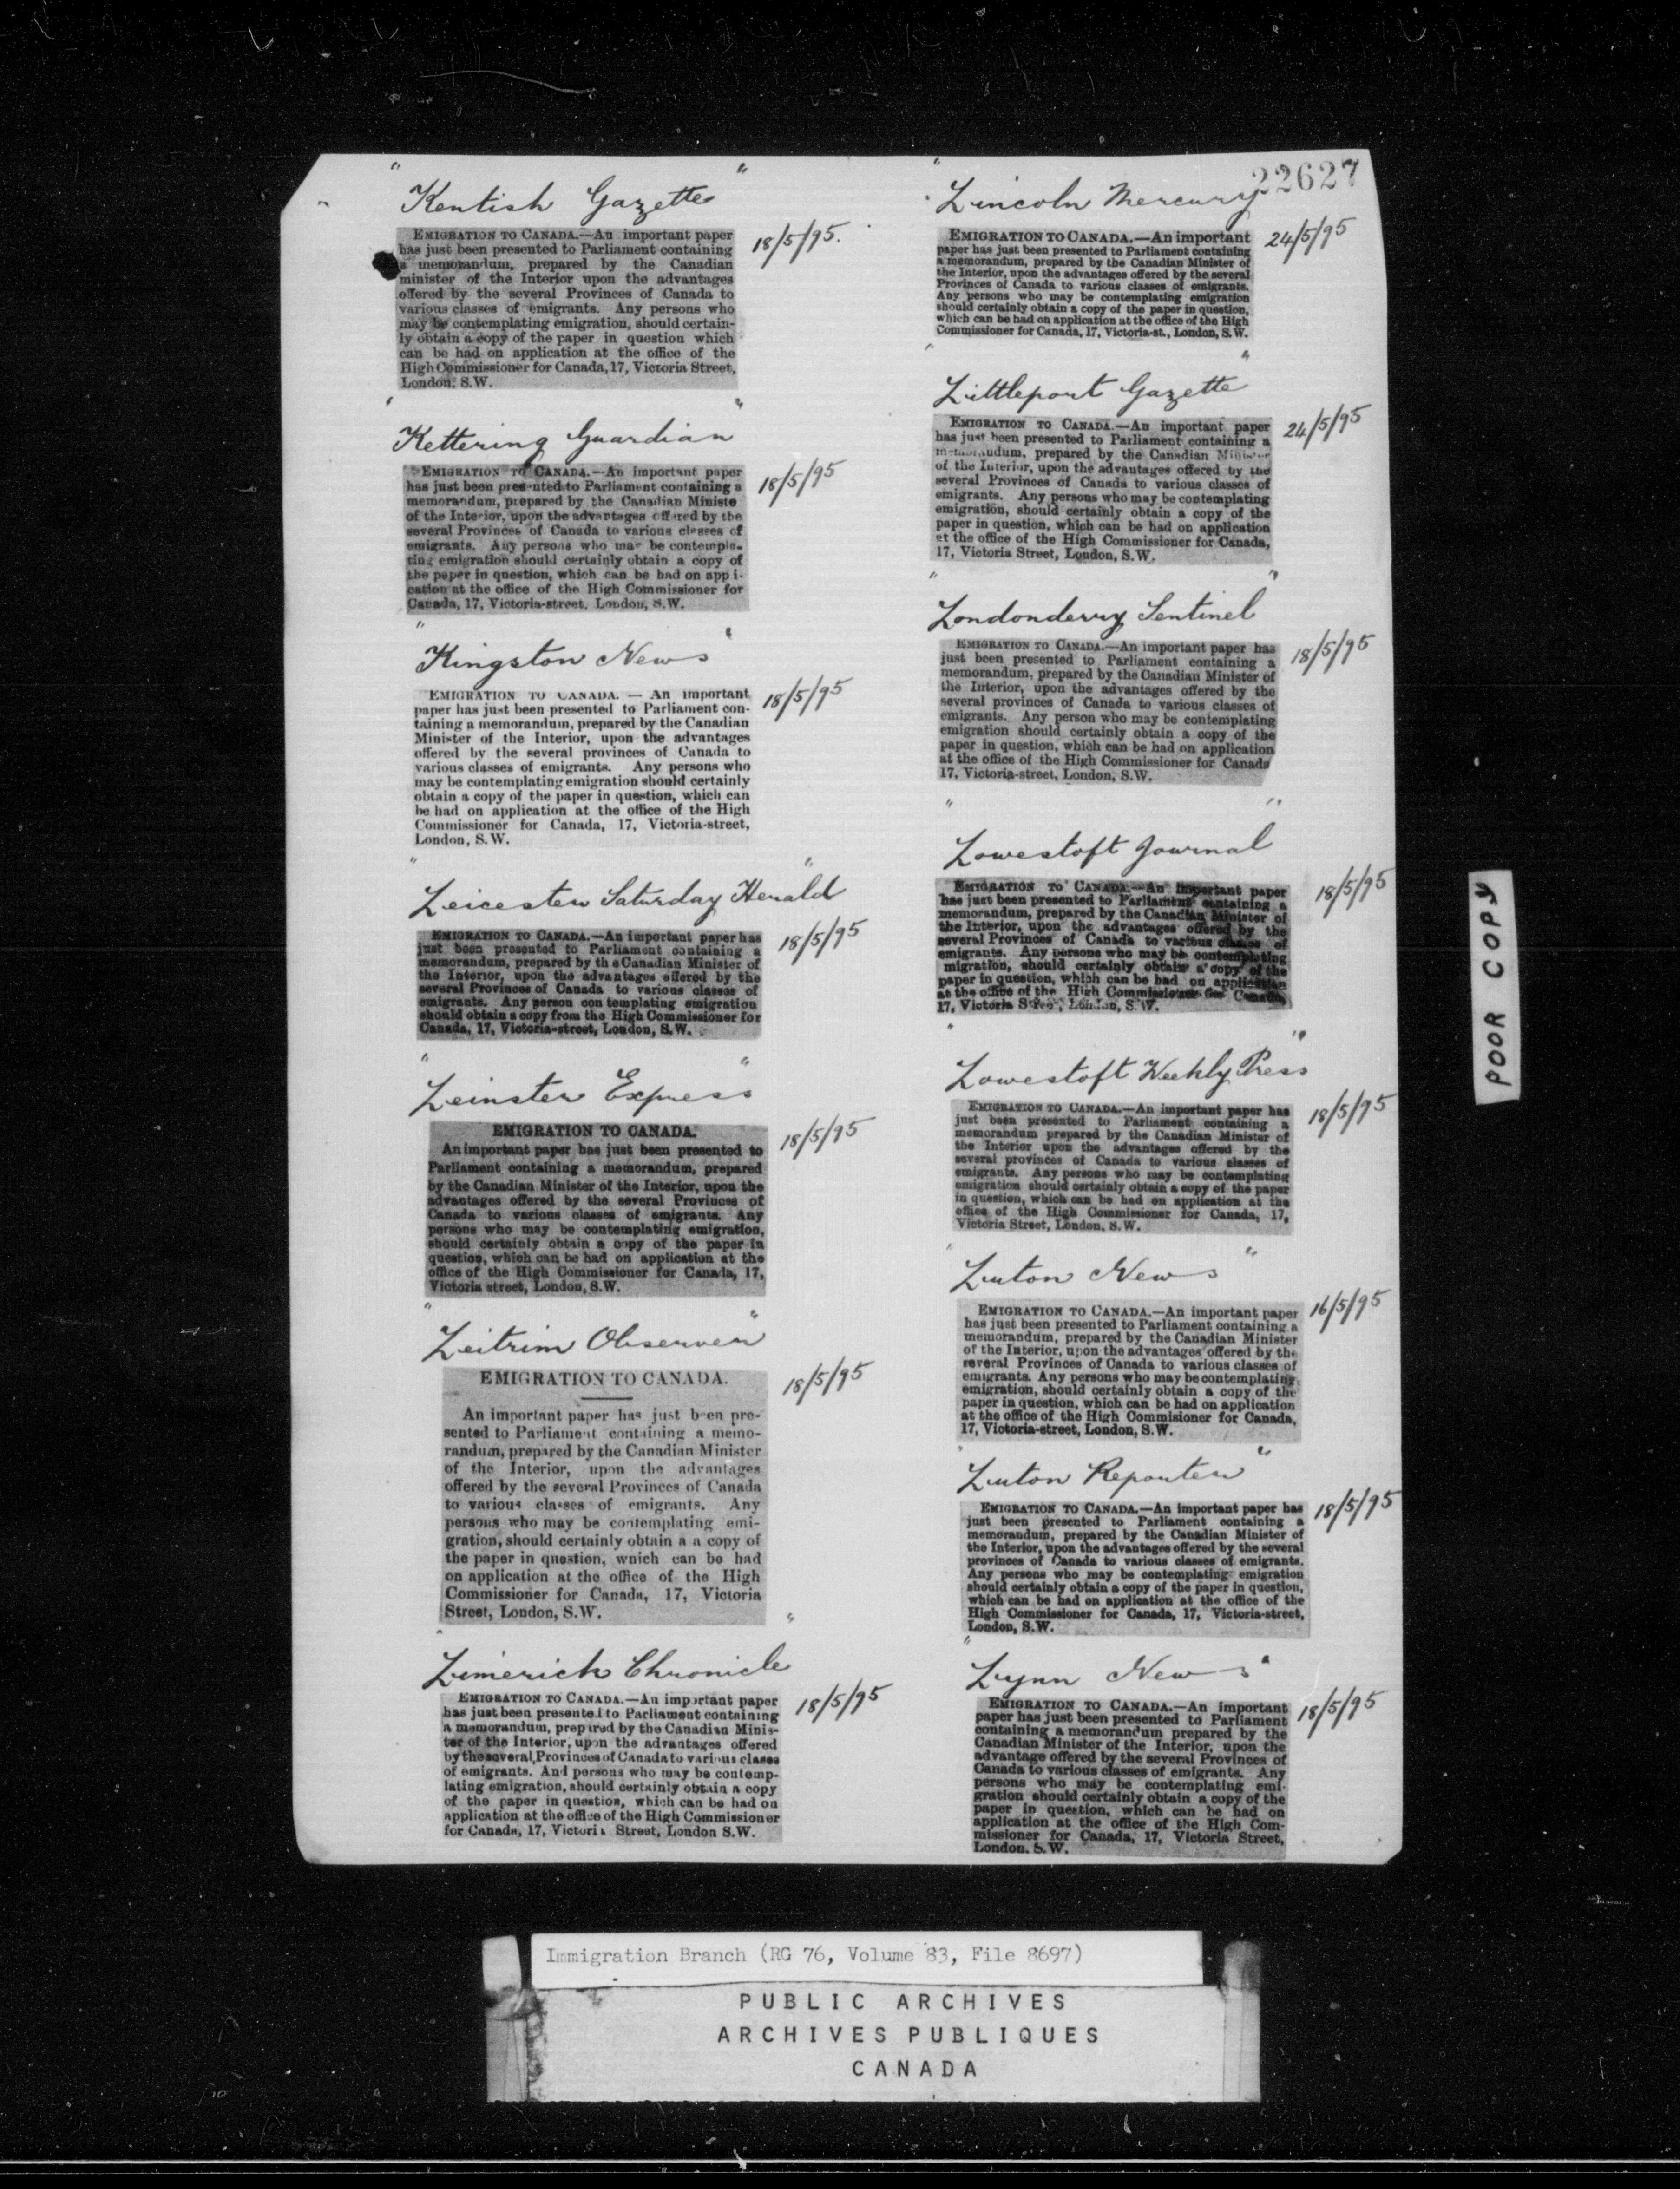 22627
"Kentish Gazette"
18/5/95.
EMIGRATION TO CANADA.—An important paper
has just been presented to Parliament containing
a memorandum, prepared by the Canadian
minister of the Interior upon the advantages
offered by the several Provinces of Canada to
various classes of emigrants. Any persons who
may be contemplating emigration, should certain-
ly obtain a copy of the paper in question which
can be had on application at the office of the
High Commissioner for Canada, 17, Victoria Street,
London, S.W.
"Kettering Guardian"
18/5/95
EMIGRATION TO CANADA.—An important paper
has just been presented to Parliament containing a
memorandum, prepared by the Canadian Ministe
of the Interior, upon the advantages offered by the
several Provinces of Canada to various classes of
emigrants. Any persons who may be contempla-
ting emigration should certainly obtain a copy of
the paper in question, which can be had on app i-
cation at the office of the High Commissioner for
Canada, 17, Victoria-street, London, S.W.
"Kingston News"
18/5/95
EMIGRATION TO CANADA. — An important
paper has just been presented to Parliament con-
taining a memorandum, prepared by the Canadian
Minister of the Interior, upon the advantages
offered by the several provinces of Canada to
various classes of emigrants. Any persons who
may be contemplating emigration should certainly
obtain a copy of the paper in question, which can
be had on application at the office of the High
Commissioner for Canada, 17, Victoria-street,
London, S.W.
"Leicester Saturday Herald"
18/5/95
EMIGRATION TO CANADA.—An important paper has
just been presented to Parliament containing a
memorandum, prepared by the Canadian Minister of
the Interior, upon the advantages offered by the
several Provinces of Canada to various classes of
emigrants. Any person con templating emigration
should obtain a copy from the High Commissioner for
Canada, 17, Victoria-street, London, S.W.
"Leinster Express"
18/5/95
EMIGRATION TO CANADA.
An important paper has just been presented to
Parliament containing a memorandum, prepared
by the Canadian Minister of the Interior, upon the
advantages offered by the several Provinces of
Canada to various classes of emigrants. Any
persons who may be contemplating emigration,
should certainly obtain a copy of the paper in
question, which can be had on application at the
office of the High Commissioner for Canada, 17,
Victoria street, London, S.W.
"Leitrim Observer"
18/5/95
EMIGRATION TO CANADA.
An important paper has just been pre-
sented to Parliament containing a memo-
randum, prepared by the Canadian Minister
of the Interior, upon the advantages
offered by the several Provinces of Canada
to various classes of emigrants. Any
persons who may be contemplating emi-
gration, should certainly obtain a a copy of
the paper in question, which can be had
on application at the office of the High
Commissioner for Canada, 17, Victoria
Street, London, S.W.
"Limerick Chronicle"
18/5/95
EMIGRATION TO CANADA.—An important paper
has just been presented to Parliament containing
a memorandum, prepared by the Canadian Minis-
ter of the Interior, upon the advantages offered
by the several Provinces of Canada to various clases
of emigrants. And persons who may be contemp-
lating emigration, should certainly obtain a copy
of the paper in question, which can be had on
application at the office of the High Commissioner
for Canada, 17, Victoria Street, London S.W.
"Lincoln Mercury
24/5/95
EMIGRATION TO CANADA.—An important
paper has just been presented to Parliament containing
a memorandum, prepared by the Canadian Minister of
the Interior, upon the advantages offered by the several
Provinces of Canada to various classes of emigrants.
Any persons who may be contemplating emigration
should certainly obtain a copy of the paper in question,
which can be had on application at the office of the High
Commissioner for Canada, 17, Victoria-st., London, S.W.
"Littleport Gazette"
24/5/95
EMIGRATION TO CANADA.—An important paper
has just been presented to Parliament containing a
memorandum, prepared by the Canadian Minister
of the Interior, upon the advantages offered by the
several Provinces of Canada to various classes of
emigrants. Any persons who may be contemplating
emigration, should certainly obtain a copy of the
paper in question, which can be had on application
at the office of the High Commissioner for Canada,
17, Victoria Street, London, S.W.
"Londonderry Sentinel"
18/5/95
EMIGRATION TO CANADA.—An important paper has
just been presented to Parliament containing a
memorandum, prepared by the Canadian Minister of
the Interior, upon the advantages offered by the
several provinces of Canada to various classes of
emigrants. Any person who may be contemplating
emigration should certainly obtain a copy of the
paper in question, which can be had on application
at the office of the High Commissioner for Canada
17, Victoria-street, London, S.W.
"Lowestoft Journal"
18/5/95
EMIGRATION TO CANADA.—An important paper
has just been presented to Parliament containing a
memorandum, prepared by the Canadian Minister of
the Interior, upon the advantages offered by the
several Provinces of Canada to various classes of
emigrants. Any persons who may be contemplating
migration, should certainly obtain a copy of the
paper in question, which can be had on application
at the office of the High Commissioner for Canada,
17, Victoria Street, London, S.W.
"Lowestoft Weekly Press"
18/5/95
EMIGRATION TO CANADA.—An important paper has
just been presented to Parliament containing a
memorandum prepared by the Canadian Minister of
the Interior upon the advantages offered by the
several provinces of Canada to various classes of
emigrants. Any persons who may be contemplating
emigration should certainly obtain a copy of the paper
in question, which can be had on application at the
office of the High Commissioner for Canada, 17,
Victoria Street, London, S.W.
"Luton News"
16/5/95
EMIGRATION TO CANADA.—An important paper
has just been presented to Parliament containing a
memorandum, prepared by the Canadian Minister
of the Interior, upon the advantages offered by the
several Provinces of Canada to various classes of
emigrants. Any persons who may be contemplating
emigration, should certainly obtain a copy of the
paper in question, which can be had on application
at the office of the High Commisioner for Canada,
17, Victoria-street, London, S.W.
"Luton Reporter"
18/5/95
EMIGRATION TO CANADA.—An important paper has
just been presented to Parliament containing a
memorandum, prepared by the Canadian Minister of
the Interior, upon the advantages offered by the several
provinces of Canada to various classes of emigrants.
Any persons who may be contemplating emigration
should certainly obtain a copy of the paper in question,
which can be had on application at the office of the
High Commissioner for Canada, 17, Victoria-street,
London, S.W.
"Lynn News"
18/5/95
EMIGRATION TO CANADA.—An important
paper has just been presented to Parliament
containing a memorandum prepared by the
Canadian Minister of the Interior, upon the
advantage offered by the several Provinces of
Canada to various classes of emigrants. Any
persons who may be contemplating emi-
gration should certainly obtain a copy of the
paper in question, which can be had on
application at the office of the High Com-
missioner for Canada, 17, Victoria Street,
London. S.W.
POOR COPY
Immigration Branch (RG 76, Volume 83, File 8697)
PUBLIC ARCHIVES
ARCHIVES PUBLIQUES
CANADA